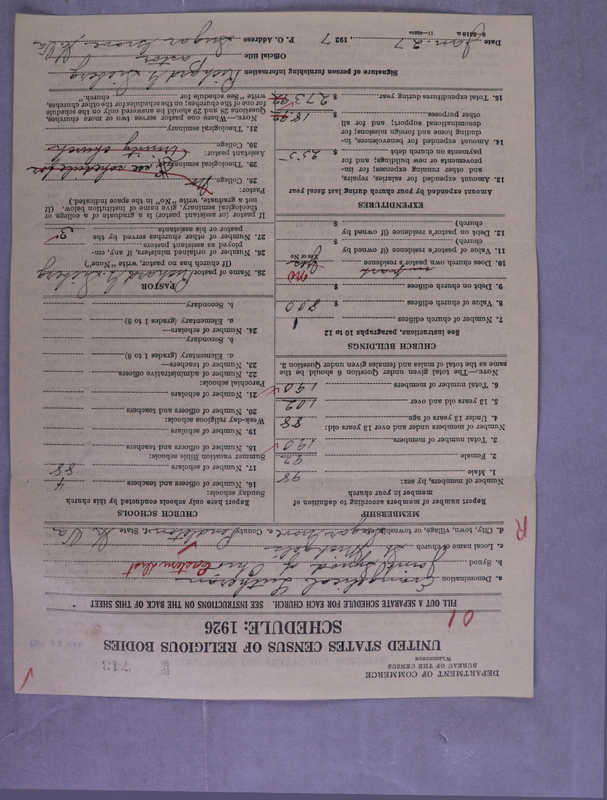 DEPARTMENT OF COMMERCE
BUREAU OF THE CENSUS
WASHINGTON
743
UNITED STATES CENSUS OF RELIGIOUS BODIES
SCHEDULE: 1926
01
FILL OUT A SEPARATE SCHEDULE FOR EACH CHURCH. SEE INSTRUCTIONS ON THE BACK OF THIS SHEET
a. Denomination Evangelical Lutheran
b. Synod Joint Synod of Ohio Eastern Dist
c. Local name of church St Michaels
d. City, town, village, or township Sugar Grove e. County Pendleton f. State W Va
R
MEMBERSHIP
Report number of members according to definition of member in your church
Number of members, by sex:
1. Male 98
2. Female 92
3. Total number of members 190
Number of members under and over 13 years old:
4. Under 13 years of age 88
5. 13 years old and over 102
6. Total number of members 190
NOTE.—The total given under Question 6 should be the same as the total of males and females given under Question 3.
CHURCH BUILDINGS
See instructions, paragraphs 10 to 12
7. Number of church edifices 1
8. Value of church edifices $ 800
9. Debt on church edifices $
10. Does church own pastor's residence no
Yes or No
11. Value of pastor's residence (if owned by church) $
12. Debt on pastor's residence (if owned by church) $
EXPENDITURES
Amount expended by your church during last fiscal year
13. Amount expended for salaries, repairs, and other running expenses; for improvements or new buildings; and for payments on church debt $ 255
14. Amount expended for benevolences, including home and foreign missions; for denominational support; and for all other purposes $ 18.
15. Total expenditures during year $ 273
CHURCH SCHOOLS
Report here only schools conducted by this church
Sunday schools:
16. Number of officers and teachers 4
17. Number of scholars 88
Summer vacation Bible schools:
18. Number of officers and teachers
19. Number of scholars
Week-day religious schools:
20. Number of officers and teachers
21. Number of scholars
Parochial schools:
22. Number of administrative officers
23. Number of teachers—
a. Elementary (grades 1 to 8)
b. Secondary
24. Number of scholars—
a. Elementary (grades 1 to 8)
b. Secondary
PASTOR
25. Name of pastor Richard L. Sieberg
(If church has no pastor, write "None")
26. Number of ordained ministers, if any, employed as assistant pastors
27. Number of other churches served by the pastor or his assistants 3
If pastor (or assistant pastor) is a graduate of a college or theological seminary, give name of institution below. (If not a graduate, write "No" in the space indicated.)
Pastor:
28. College
29. Theological seminary See schedule for
Assistant pastor: Trinity church
30. College
31. Theological seminary
NOTE.—Where one pastor serves two or more churches, Questions 25 and 27 should be answered only on the schedule for one of the churches; on the schedules for the other churches, write "See schedule for church."
Signature of person furnishing information Richard L. Sieberg
Official title Pastor
P. O. Address Sugar Grove, W Va
Date Jan. 27, 1927
8-5518 a